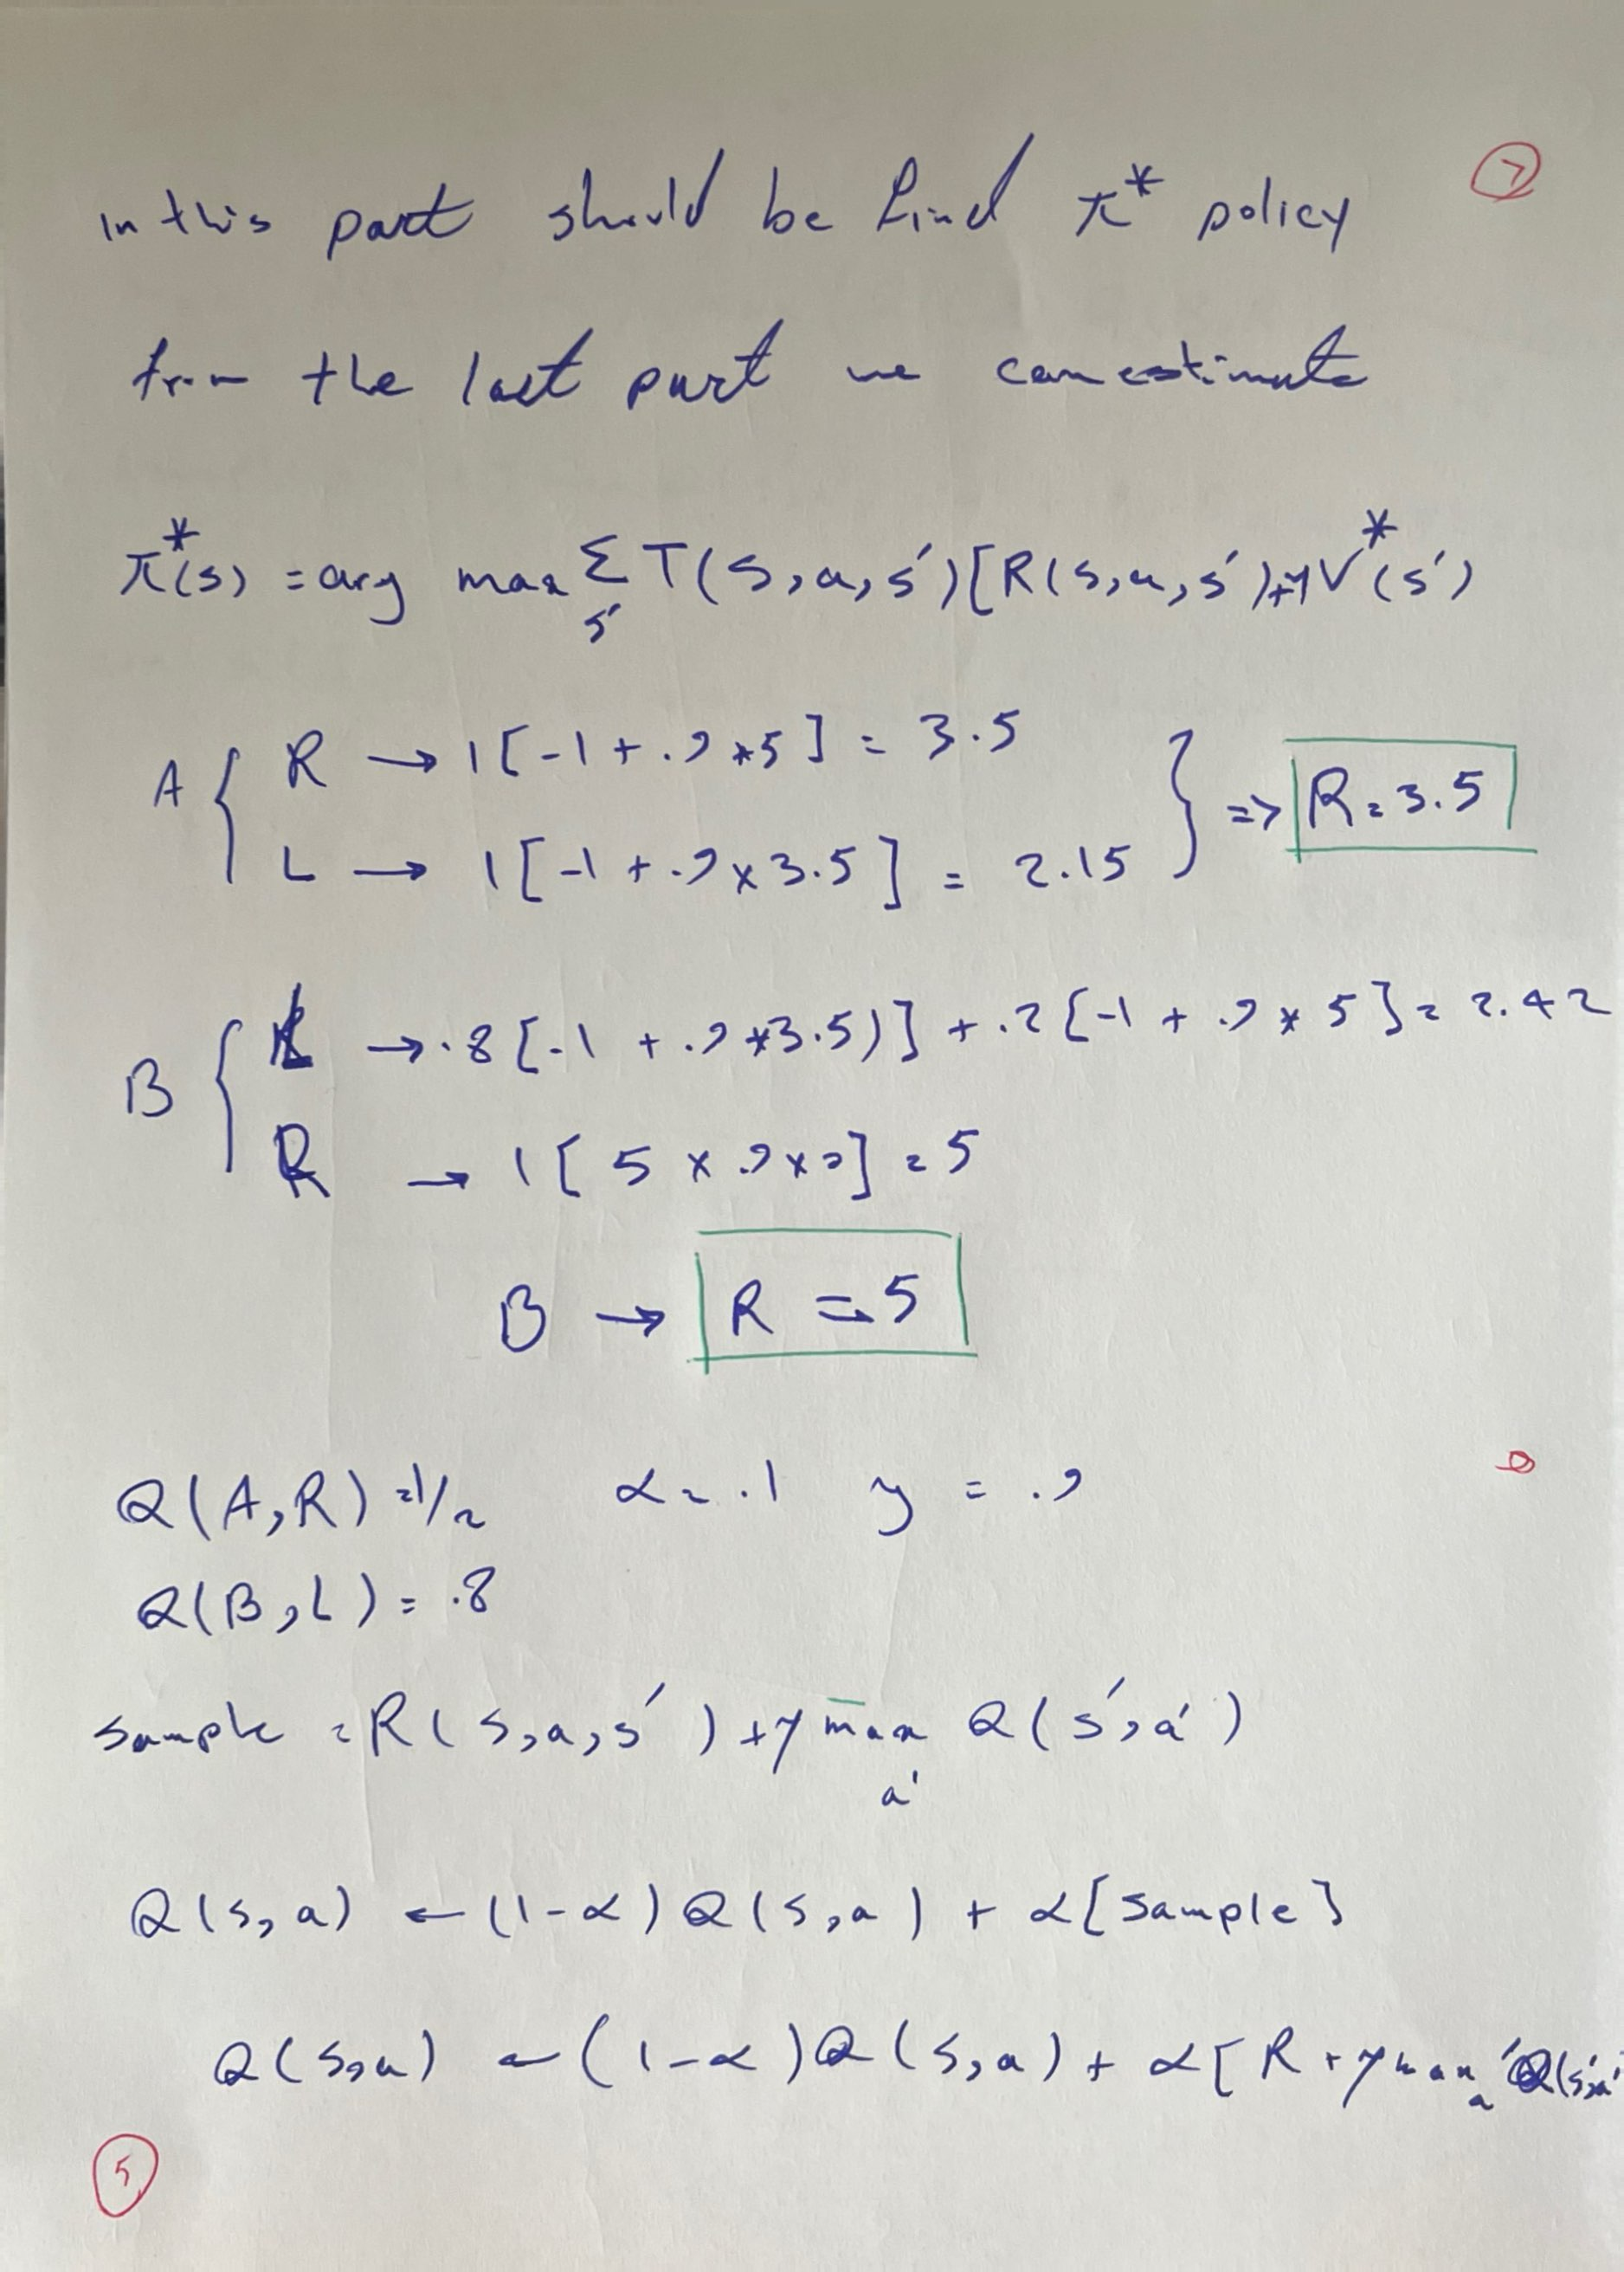 in this part should be find π* policy
from the last part we can estimate
π*(s) = arg max Σ T(s,a,s′)[R(s,a,s′)+γV*(s′)
s′
A { R → 1[-1 + .9 * 5] = 3.5
L → 1[-1 + .9 × 3.5] = 2.15 } => R = 3.5
B { L → .8[-1 + .9 * 3.5)] + .2[-1 + .9 * 5] = 2.42
R → 1[5 × .9 × 0] = 5
B → R = 5
Q(A,R) = 1/2 α = .1 γ = .9
Q(B,L) = .8
sample = R(s,a,s′) + γ max Q(s′,a′)
a'
Q(s,a) ← (1-α)Q(s,a) + α[sample]
Q(s,a) ← (1-α)Q(s,a) + α[R + γ max Q(s′,a′
a′
5